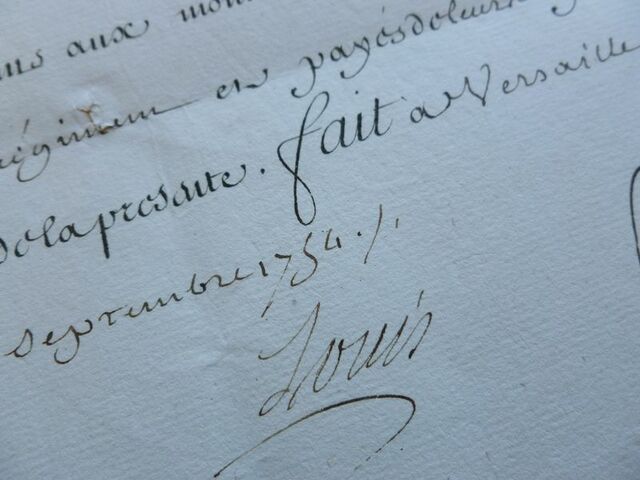 aux mou
Régiment et payés de leur
de la presente. fait a Versaille
septembre 1754 ./.
Louis